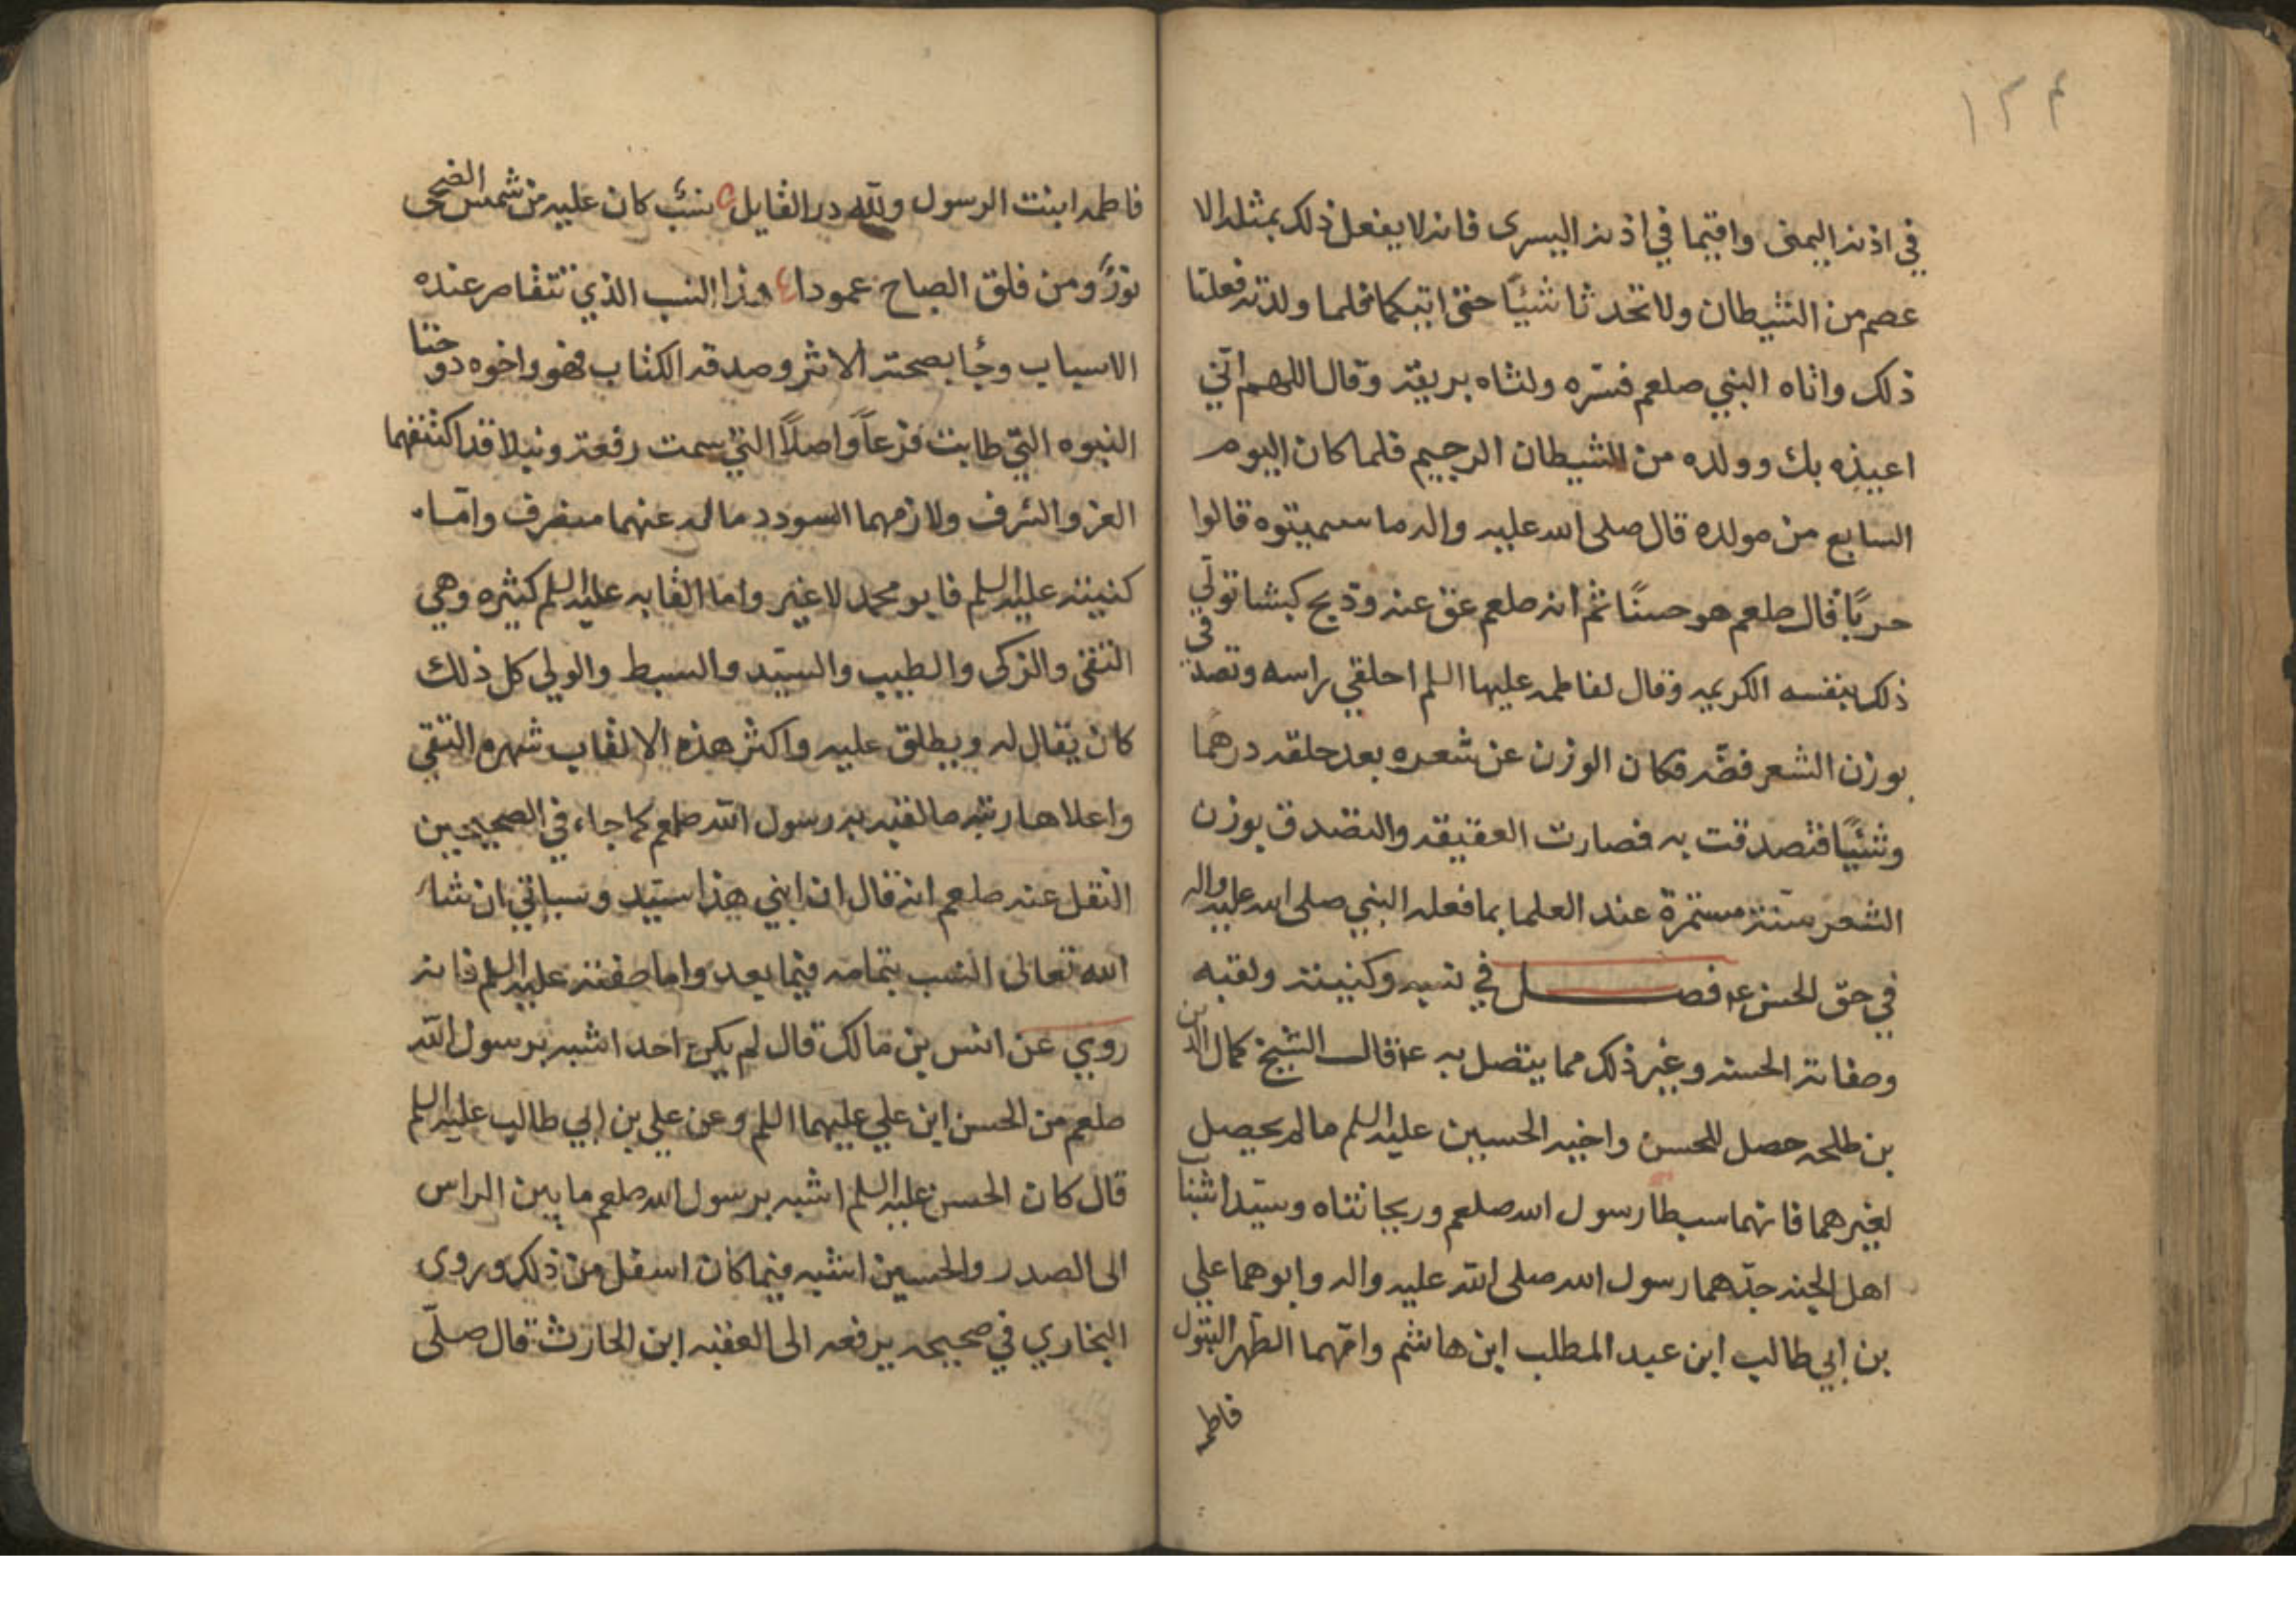 ١٢٤
في اذنه اليمنى واقيما في اذنه اليسرى فانه لا يفعل ذلك بمثله الا
عصم من الشيطان ولا تحدثا شيئًا حتى اتيكما فلما ولدته فعلتا
ذلك واتاه النبي صلعم فسره ولثاه بريقه وقال اللهم اني
اعيذه بك وولده من الشيطان الرجيم فلما كان اليوم
السابع من مولده قال صلى الله عليه واله ما سميتوه قالوا
حربًا قال صلعم هو حسنًا ثم انه صلعم عق عنه وذبح كبشا تولي
ذلك بنفسه الكريمه وقال لفاطمه عليها السلم احلقي راسه وتصدقي
بوزن الشعر فضّه فكان الوزن عن شعره بعد حلقه درهما
وشيًا فتصدقت به فصارت العقيقه والتصدق بوزن
الشعر سنّة مستمرة عند العلما بما فعله النبي صلى الله عليه واله
في حق الحسن ع‍م فصل في نسبه وكنيته ولقبه
وصفاته الحسنه وغير ذلك مما يتصل به ع‍م قال الشيخ كمال الدين
بن طلحه حصل للحسن واخيه الحسين عليه السلم ما لم يحصل
لغيرهما فانهما سبطا رسول الله صلعم وريحانتاه وسيّدا شباب
اهل الجنه جدّهما رسول الله صلى الله عليه واله وابوهما علي
بن ابي طالب ابن عبد المطلب ابن هاشم وامّهما الطهر البتول
فاطمه
فاطمه ابنت الرسول ولله در القايل نسبٌ كان عليه من شمس الضحى
نورًا ومن فلق الصباح عمودا هذا النسب الذي تتقاصر عنده
الاسباب وجُا بصحته الاثر وصدقه الكتاب فهو واخوه دوحتا
النبوه التي طابت فرعاً واصلاً التي سمت رفعة ونبلا قد اكتنفهما
العز والشرف ولازمهما السودد ماله عنهما منصرف وامّا
كنيته عليه السلم فابو محمد لا غير واما القابه عليه السلم كثيره وهي
التقي والزكى والطيب والسيّد والسبط والولي كل ذلك
كان يقال له ويطلق عليه واكثر هذه الالقاب شهره التقي
واعلاها رتبه ما لقبه به رسول الله صلعم كما جاء في الصحيحين
النقل عنه صلعم انه قال ان ابني هذا سيّد وسياتي ان شاء
الله تعالى النسب بتمامه فيما بعد واما صفته عليه السلم فانه
روي عن انس بن مالك قال لم يكن احد اشبه برسول الله
صلعم من الحسن ابن علي عليهما السلم وعن علي بن ابي طالب عليه السلم
قال كان الحسن عليه السلم اشبه برسول الله صلعم ما بين الراس
الى الصدر والحسين اشبه فيما كان اسفل من ذلك وروى
البخاري في صحيحه يرفعه الى العقبه ابن الحارث قال صلّى